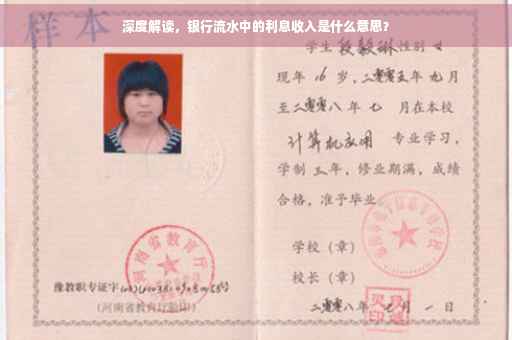 深度解读，银行流水中的利息收入是什么意思?
样本
学生 段毅琳 性别 女
现年 16 岁，二零零五年 九 月
至二零零八年 七 月在本校
计算机应用 专业学习，
学制 三 年，修业期满，成绩
合格，准予毕业
学校（章）
校长（章）
二零零八年 七 月 一 日
河南省教育厅
豫教职专证字
(河南省教育厅验印)